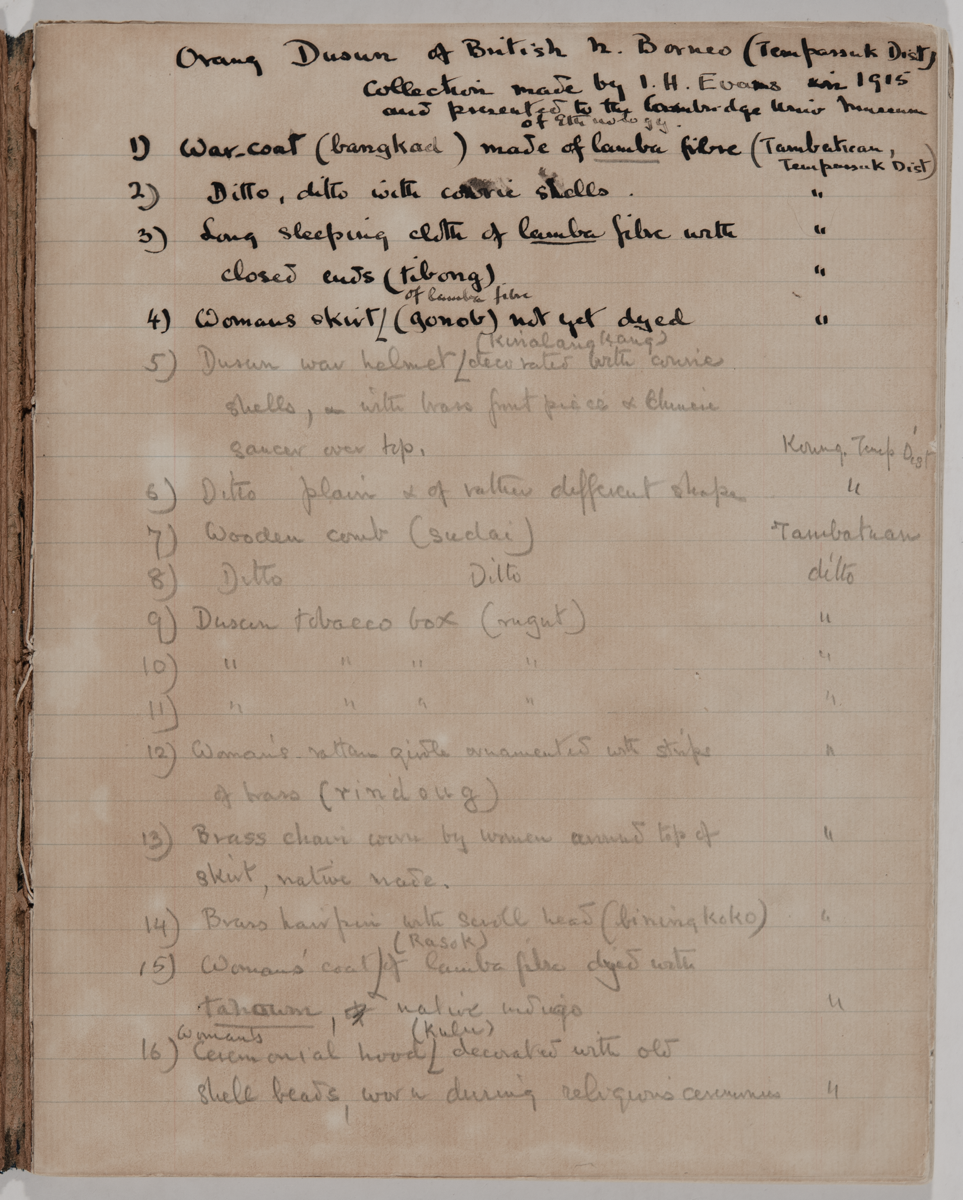 Orang Dusun of British N. Borneo (Tempassuk Dist)
Collection made by I. H. Evans in 1915
and presented to the Cambridge Univ Museum
of Ethnology.
1) War-coat (bangkad ) made of lamba fibre (Tambatuan,
Tempassuk Dist)
2) Ditto, ditto with cowrie shells . "
3) Long sleeping cloth of lamba fibre with "
closed ends (tibong) "
of lamba fibre
4) Womans skirt/(gonob) not yet dyed "
(Kinalangkang)
5) Dusun war helmet/decorated with cowrie
shells, with brass front piece & Chinese
saucer over top. Temp Dist
6) Ditto plain & of rather different shape "
7) Wooden comb (sudai) Tambatuan
8) Ditto Ditto ditto
9) Dusun tobacco box (rugut) "
10) " " " " "
11) " " " " "
12) Woman's rattan girdle ornamented with strips "
of brass (rindoug)
13) Brass chain worn by women around top of "
skirt, native made.
14) Brass hairpin with scroll head (biningkoko) "
(Rasok)
15) Womans' coat/of lamba fibre dyed with
& native indigo "
Woman's (Kulu)
16) Ceremonial hood/ decorated with old
shell beads, worn during religious ceremonies "